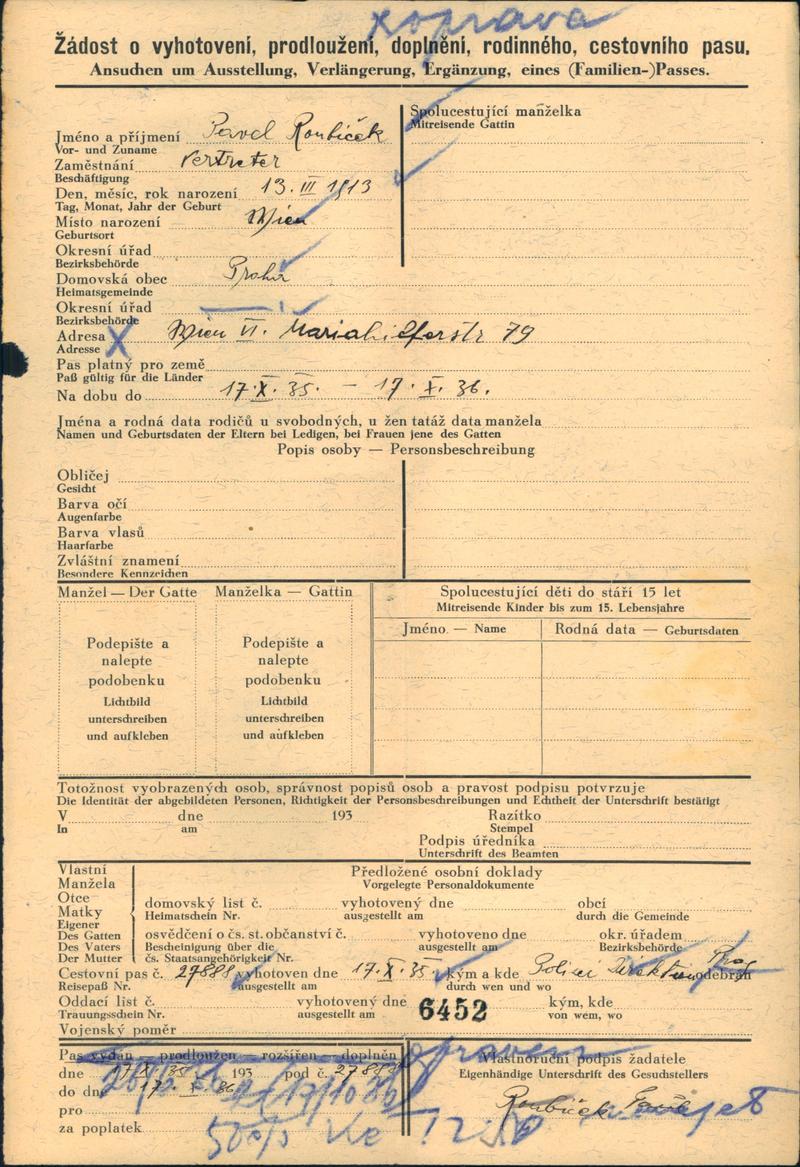 oprava
Žádost o vyhotovení, prodloužení, doplnění, rodinného, cestovního pasu.
Ansuchen um Ausstellung, Verlängerung, Ergänzung, eines (Familien-)Passes.
Spolucestující manželka
Mitreisende Gattin
Jméno a příjmení Pavel Roubíček
Vor- und Zuname
Zaměstnání Vertreter
Beschäftigung
Den, měsíc, rok narození 13. III 1913
Tag, Monat, Jahr der Geburt
Místo narození Wien
Geburtsort
Okresní úřad
Bezirksbehörde
Domovská obec
Heimatsgemeinde
Okresní úřad
Bezirksbehörde
Adresa Wien VI. Mariahilferstr 79
Adresse
Pas platný pro země
Paß gültig für die Länder
Na dobu do 17. X. 35. – 17. X. 36.
Jména a rodná data rodičů u svobodných, u žen tatáž data manžela
Namen und Geburtsdaten der Eltern bei Ledigen, bei Frauen jene des Gatten
Popis osoby — Personsbeschreibung
Obličej
Gesicht
Barva očí
Augenfarbe
Barva vlasů
Haarfarbe
Zvláštní znamení
Besondere Kennzeichen
Manžel — Der Gatte
Manželka — Gattin
Spolucestující děti do stáří 15 let
Mitreisende Kinder bis zum 15. Lebensjahre
Jméno — Name
Rodná data — Geburtsdaten
Podepište a
nalepte
podobenku
Lichtbild
unterschreiben
und aufkleben
Podepište a
nalepte
podobenku
Lichtbild
unterschreiben
und aufkleben
Totožnost vyobrazených osob, správnost popisů osob a pravost podpisu potvrzuje
Die Identität der abgebildeten Personen, Richtigkeit der Personsbeschreibungen und Echtheit der Unterschrift bestätigt
V dne 193 Razítko
In am Stempel
Podpis úředníka
Unterschrift des Beamten
Vlastní
Manžela
Otce
Matky
Eigener
Des Gatten
Des Vaters
Der Mutter
Předložené osobní doklady
Vorgelegte Personaldokumente
domovský list č. vyhotovený dne obcí
Heimatschein Nr. ausgestellt am durch die Gemeinde
osvědčení o čs. st. občanství č. vyhotoveno dne okr. úřadem
Bescheinigung über die ausgestellt am Bezirksbehörde
čs. Staatsangehörigkeit Nr.
Cestovní pas č. 27888 vyhotoven dne 17. X. 35 kým a kde
Reisepaß Nr. ausgestellt am durch wen und wo
Oddací list č. vyhotovený dne 6452 kým, kde
Trauungsschein Nr. ausgestellt am von wem, wo
Vojenský poměr
Pas vydán — prodloužen — rozšířen — doplněn
dne 17 X 35 193 pod č. 27888
do dne 17. X. 36
pro
za poplatek
Vlastnoruční podpis žadatele
Eigenhändige Unterschrift des Gesuchstellers
Roubíček